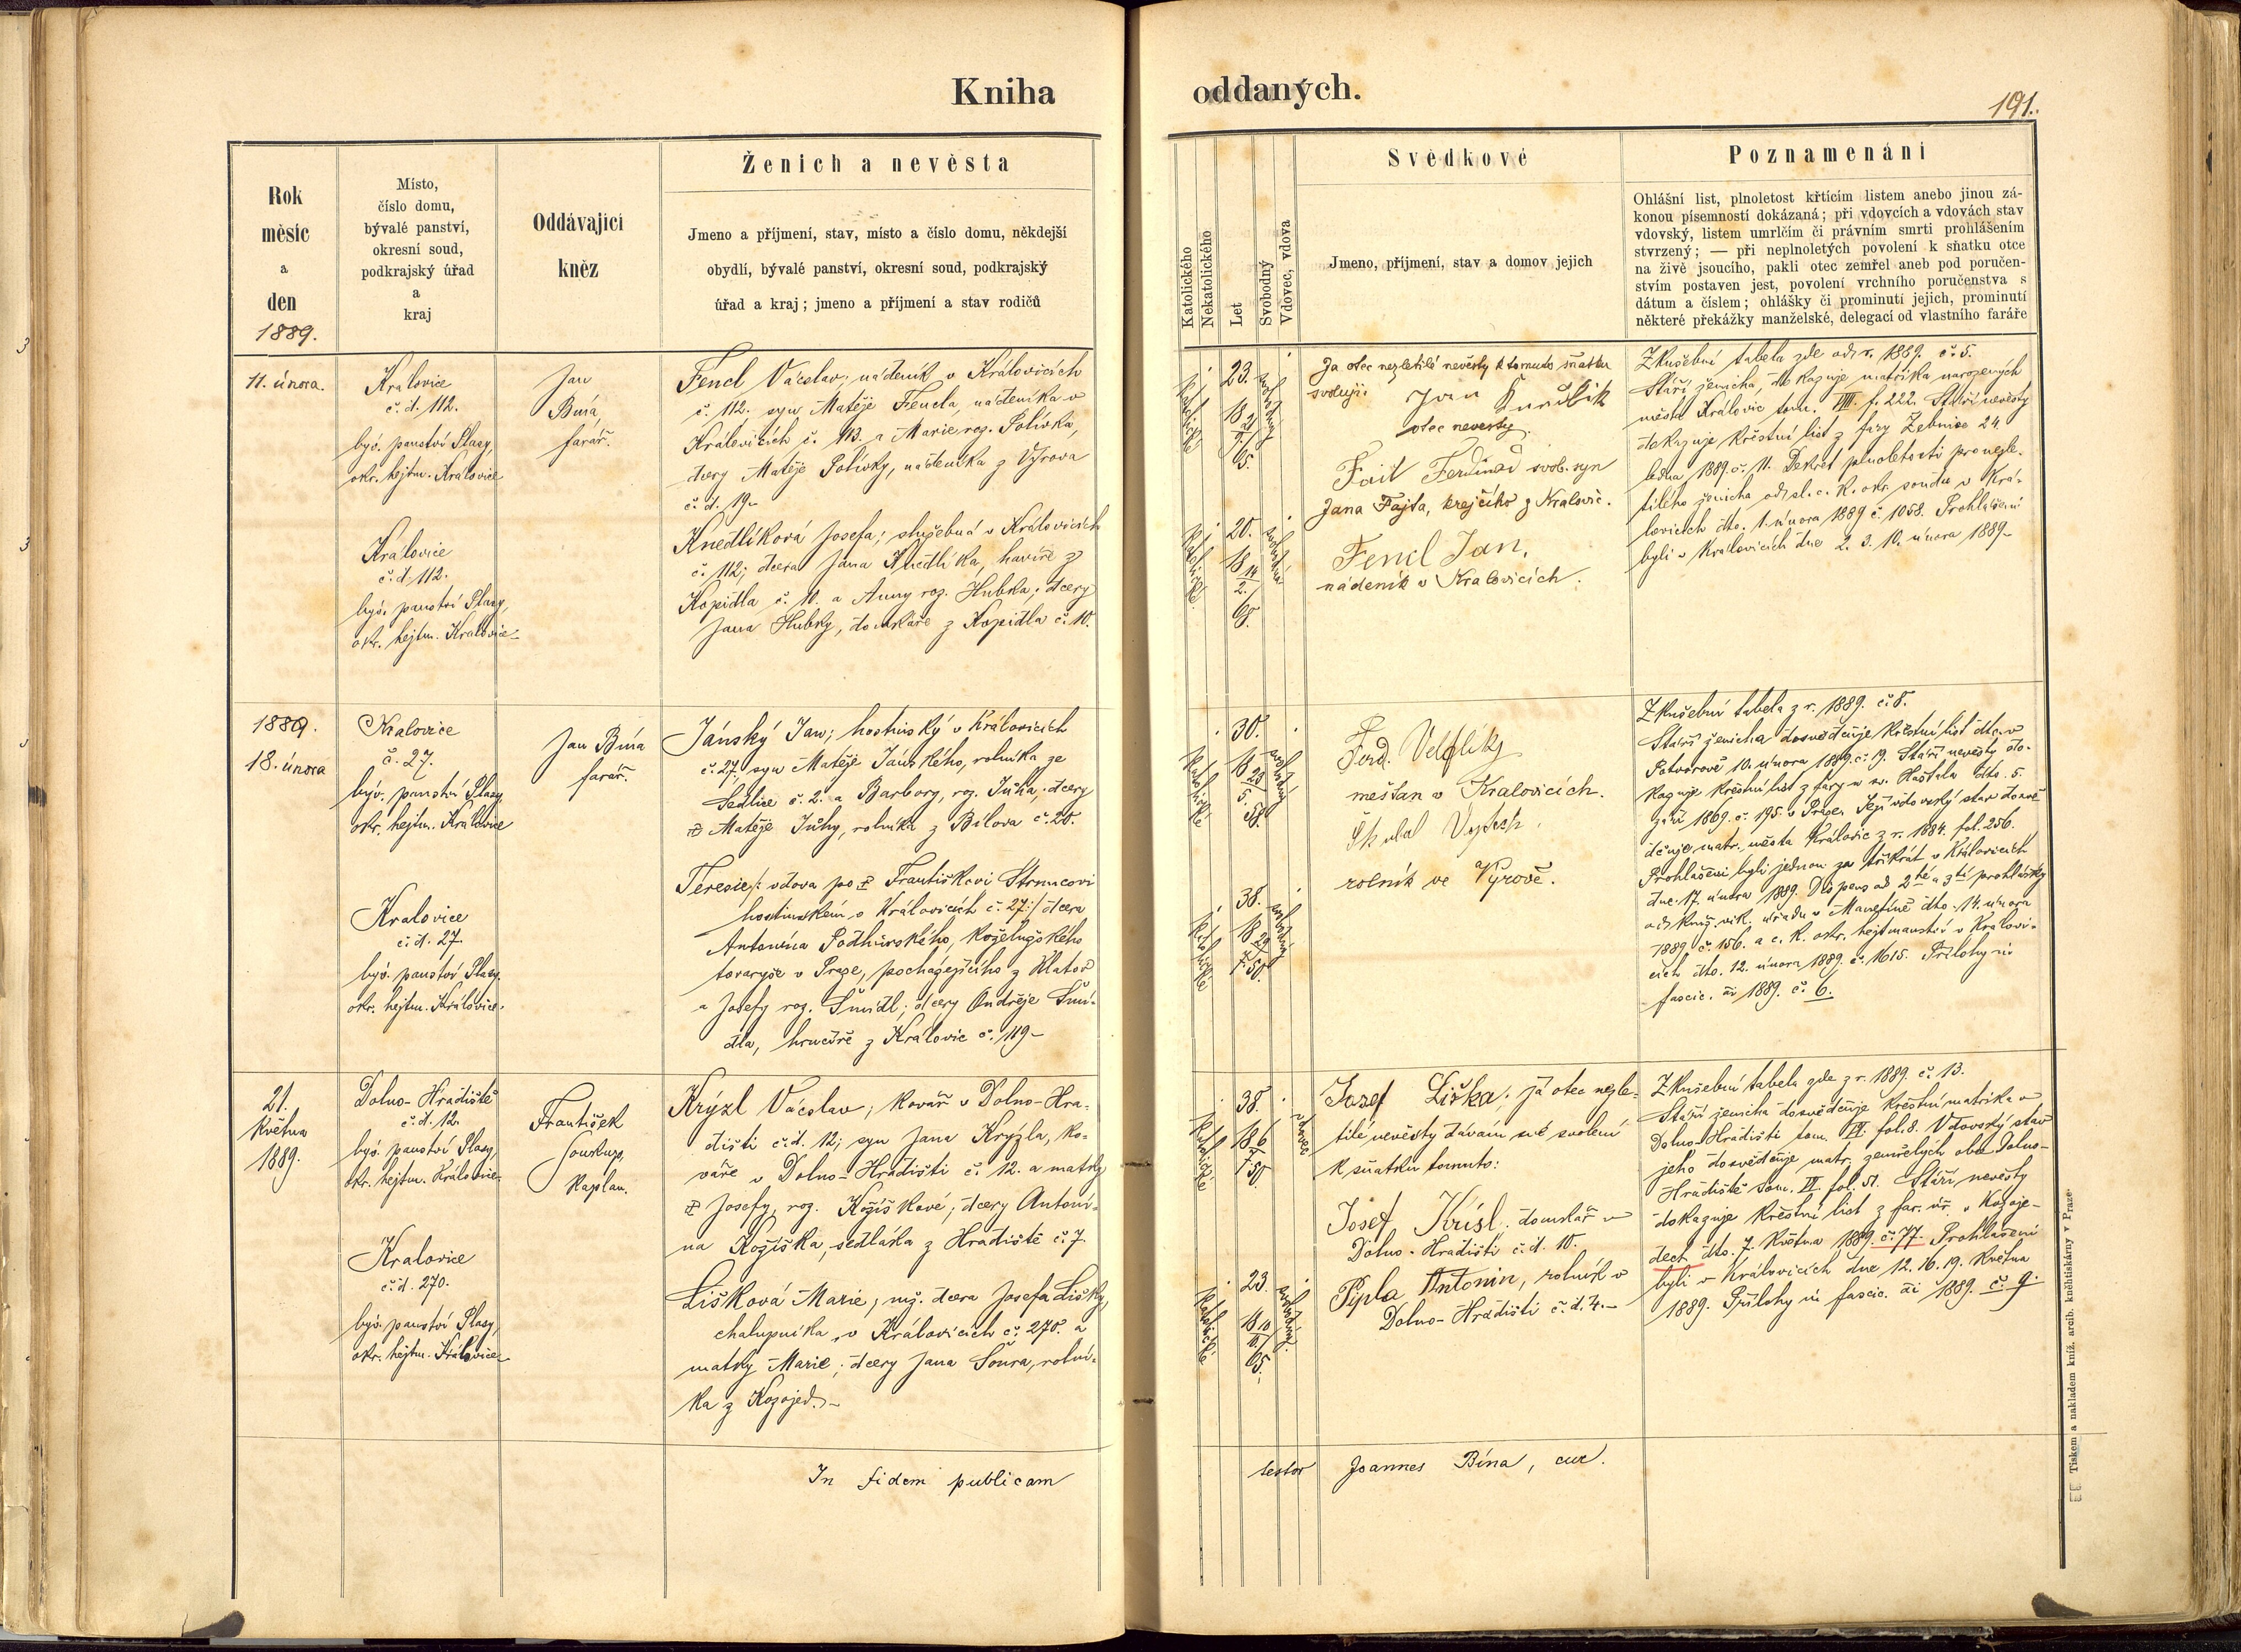 Kniha
oddaných.
191.
Rok
měsíc
a
den
1889.
Místo,
číslo domu,
bývalé panství,
okresní soud,
podkrajský úřad
a
kraj
Oddávající
kněz
Ženich a nevěsta
Jmeno a příjmení, stav, místo a číslo domu, někdejší
obydlí, bývalé panství, okresní soud, podkrajský
úřad a kraj; jmeno a příjmení a stav rodičů
Katolického
Nekatolického
Let
Svobodný
Vdovec, vdova
Svědkové
Jmeno, příjmení, stav a domov jejich
Poznamenání
Ohlášní list, plnoletost křtícím listem anebo jinou zá-
konou písemností dokázaná; při vdovcích a vdovách stav
vdovský, listem umrlčím či právním smrti prohlášením
stvrzený; — při neplnoletých povolení k sňatku otce
na živě jsoucího, pakli otec zemřel aneb pod poručen-
stvím postaven jest, povolení vrchního poručenstva s
dátum a číslem; ohlášky či prominutí jejich, prominutí
některé překážky manželské, delegací od vlastního faráře
11. února.
Kralovice
č. d. 112.
býv. panství Plasy,
okr. hejtm. Kralovice
Jan
Bína,
farář.
Fencl Václav; nádeník v Královicích
č. 112. syn Matěje Fencla, nádeníka v
Královicích č. 113. a Marie roz. Polívka,
dcery Matěje Polívky, nádeníka z Výrova
č. d. 19.-
Kralovice
č. d. 112.
býv. panství Plasy,
okr. hejtm. Kralovice-
Knedlíková Josefa; služebná v Královicích
č. 112; dcera Jana Knedlíka, havíře z
Kopidla č. 10. a Anny roz. Hubka; dcery
Jana Hubky, domkáře z Kopidla č. 10.
katolické
23.
18 21/9. 65.
svobodný
katolické
20.
18 14/2. 68.
svobodná
Já otec nezletilé nevěsty k tomuto sňatku
svoluji:
Jan Knedlik
otec nevesty.
Fait Ferdinad svob. syn
Jana Fajta, krejčího z Kralovic.
Fencl Jan,
nádeník v Kralovicích.
Zkušební tabela zde od r. 1889. č. 5.
Stáří ženicha, dokazuje matrika narozených
města Královic tom. VIII. f. 222. Stáří nevěsty
dokazuje křestní list z fary Žebnice 24
ledna 1889. č. 11. Dekret plnoletosti pro nezle-
tilého ženicha od sl. c. k. okr. soudu v Krá-
lovicích dto. 1. února 1889 č. 1058. Prohlášeni
byli v Kralovicích dne 2. 3. 10. února 1889-
1889.
18. února
Kralovice
č. 27.
býv. panství Plasy
okr. hejtm. Kralovice
Jan Bína
farář.
Jánský Jan; hostinský v Kralovicích
č. 27; syn Matěje Jánského, rolníka ze
Sedlice č. 2. a Barbory, roz. Juha; dcery
Matěje Juhy, rolníka z Bílova č. 20.
Kralovice
č. d. 27.
býv. panství Plasy.
okr. hejtm. Královice.
Teresie /: vdova po Františkovi Strnacovi
hostinském v Královicích č. 27 :/ dcera
Antonína Podhůrského, koželužského
tovaryše v Praze, pocházejícího z Klatov
a Josefy roz. Šmídl; dcery Ondřeje Šmí-
dla, hrnčíře z Královic č. 119-
katolické
30.
18 23/5. 58.
svobodný
katolické
38.
18 29/7. 50.
Ferd. Velflík
mešťan v Kralovicích.
rolník ve Výrově.
Zkušební tabela z r. 1889. č. 8.
Stáří ženicha dosvědčuje křestní list dto. v
Potvorově 10. února 1889. č. 19. Stáří nevěsty do-
kazuje křestní list z fary u sv. Haštala dto. 5.
září 1869. č. 195. v Praze. Její vdovský stav dosvě-
dčuje matr. města Královic z r. 1884. fol. 256.
Prohlášeni byli jednou za třikrát v Královicích
dne 17. února 1889. Dispens od 2hé a 3tí prohlášky
od kníž. vik. úřadu v Manetíně dto. 14. února
1889 č. 156. a c. k. okr. hejtmanství v Kralovi-
cích dto. 12. února 1889. č. 1615. Přílohy in
fascic. 1889. č. 6.
21.
května
1889.
Dolno-Hradiště
č. d. 12.
býv. panství Plasy,
okr. hejtm. Královice-
František
Soukup,
kaplan.
Krýzl Václav; kovář v Dolno-Hra-
dišti č. d. 12; syn Jana Krýzla, ko-
váře v Dolno-Hradišti č. 12. a matky
Josefy, roz. Kožíškové; dcery Antoní-
na Kožíška, sedláka z Hradiště č. 7.
Kralovice
č. d. 270.
býv. panství Plasy,
okr. hejtm. Královice-
Lišková Marie; mž. dcera Josefa Lišky,
chalupníka v Královicích č. 270. a
matky Marie; dcery Jana Šoura, rolní-
ka z Kozojed.-
katolické
38.
vdovec
katolické
23.
svobodná
Josef Liška. já otec nezle-
tilé nevěsty dávám své svolení
k sňatku tomuto:
Josef Krisl. domkář v
Dolno-Hradišti č. d. 10.
Pipla Antonin, rolník v
Dolno-Hradišti č. d. 4.-
Zkušební tabela zde z r. 1889. č. 13.
Stáří ženicha dosvědčuje křestní matrika v
Dolno-Hradišti tom. IV. fol. 8. Vdovský stav
jeho dosvědčuje matr. zemřelých obce Dolno-
Hradiště tom. IV. fol. 51. Stáří nevěsty
dokazuje křestní list z far. úř. v Kozoje-
dech dto. 7. května 1889. č. 77. Prohlášeni
byli v Královicích dne 12. 16. 19. května
1889. Přílohy in fascic. 1889. č. 9.
In fidem publicam
testor Joannes Bína, cur.
Tiskem a nakladem kníž. arcib. knihtiskárny v Praze.